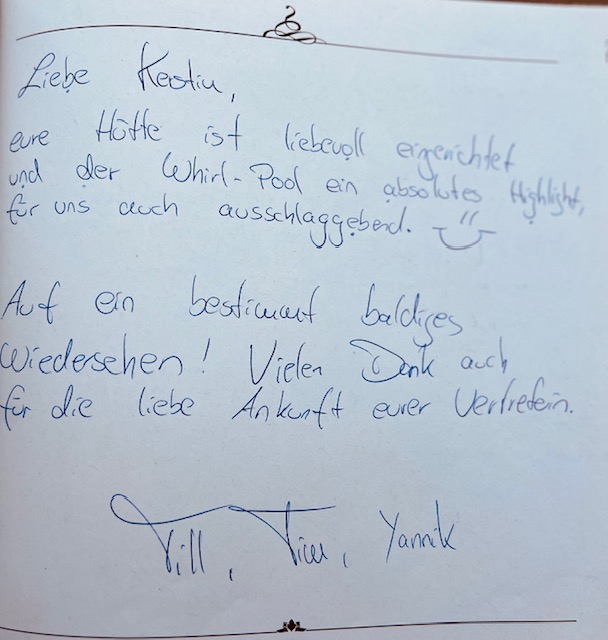 Liebe Kerstin,
eure Hütte ist liebevoll eigerichtet
und der Whirl-Pool ein absolutes Highlight,
für uns auch ausschlaggebend.
Auf ein bestimmt baldiges
Wiedersehen! Vielen Dank auch
für die liebe Ankunft eurer Vertretein.
Till, Tim, Yannik